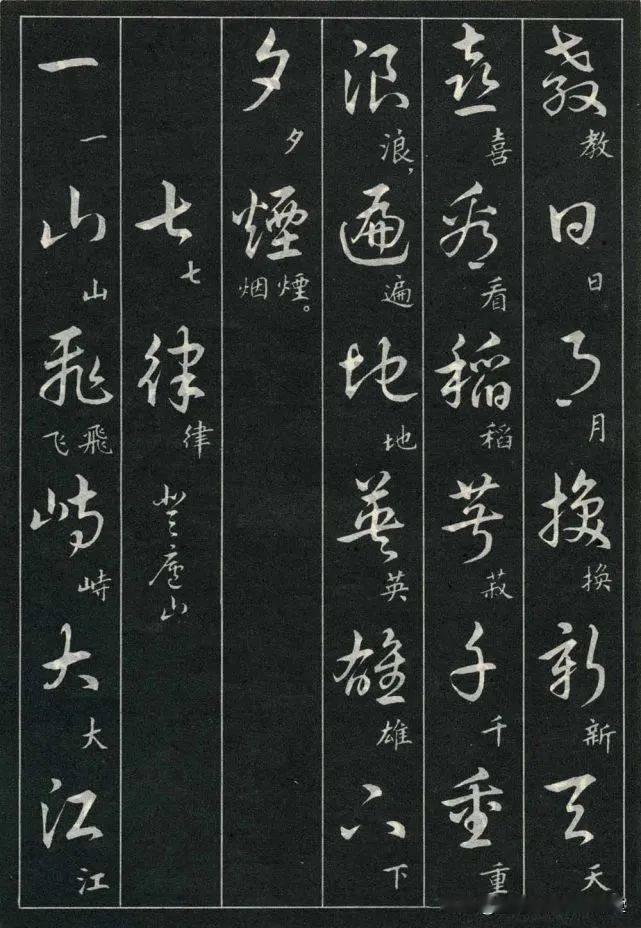 教日月换新天
教日月换新天
喜看稻菽千重
喜看稻菽千重
浪遍地英雄下
浪，遍地英雄下
夕煙
夕煙。烟
七律 登廬山
七律
一山飛峙大江
一山飛飞峙大江